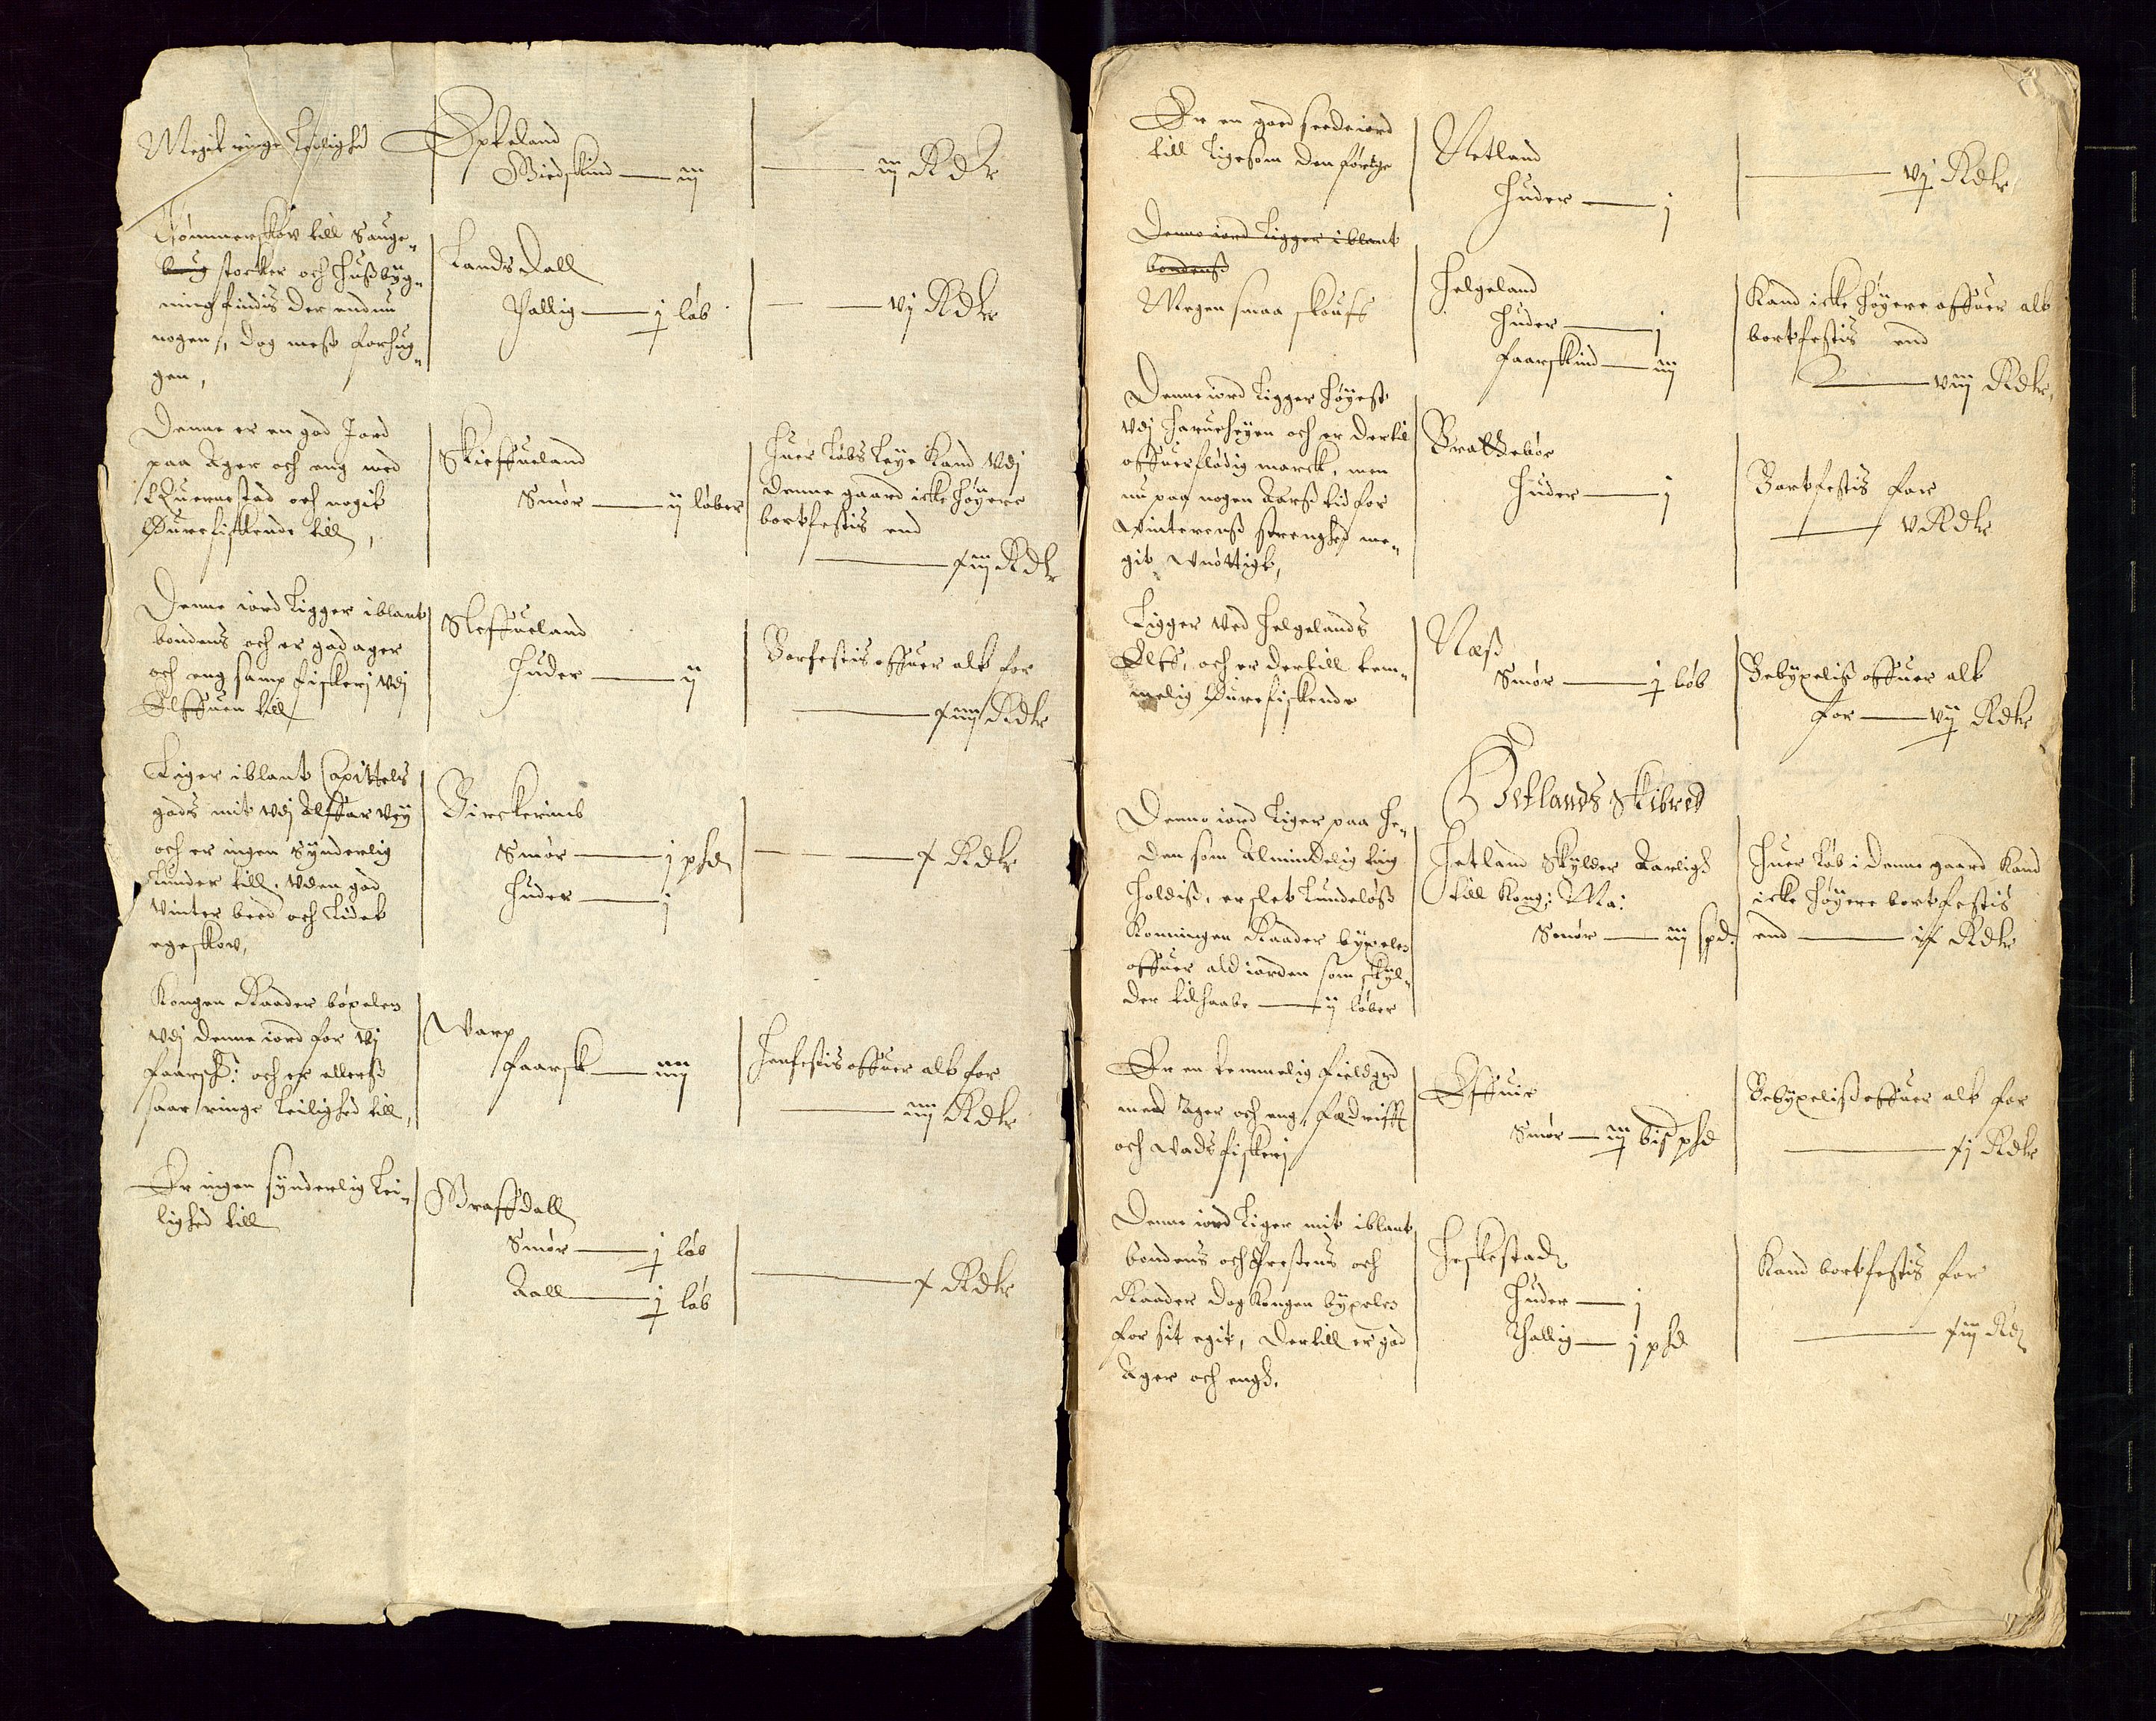 Megit ringe Leilighed
Epkeland
Giedskind — iij
— iij Rdlr
Tømmerskov till Sauge-
stocker och Hußbyg-
ning findis der endnu
nogen, dog mest forhug-
gen,
Lands Dall
Tallig — j løb
— vj Rdlr
Denne er en god Jord
paa Ager och eng med
Quernestad och nogit
Ørrefiskende till,
Skieffueland
Smør — ij løber
Huer Løbs Leye Kand vdj
denne gaard icke høyere
bortfestis end
— xiij Rdlr
Denne iord Ligger iblant
bondens och er god ager
och eng samp fiskerj vdj
Elffuen till
Sleffueland
Huder — ij
Borfestis offuer alt for
— xiiij Rdlr
Liger iblant Capittels
gods mit vdj Alffar vey
och er ingen synderlig
Lunder till. vden god
vinter beed och Lidet
egeskov,
Birckerimb
Smør — j phd
Huder — j
— x Rdlr
Kongen Raader bøxelen
vdj denne iord for vj
faarsk: och er ellerß
saar ringe leilighed till,
Warp
faarsk — iiij
Henfestis offuer alt for
— iiij Rdlr
Er ingen synderlig Lei-
lighed till
Graffdall
Smør — j løb
Aall — j løb
— x Rdlr
Er en god seedeiord
till ligesom den forige
Netland
Huder — j
— vj Rdlr
Denne iord Ligger iblant
bondenß
Megen smaa skouff
Helgeland
Huder — j
faarskind — iiij
Kand icke høyere offuer alt
bortfestis end
— viij Rdlr
Denne iord Ligger høyest
vdj Harueheyen och er dertil
offuerflødig marck, men
nu paa nogen Aarß tid for
vinterenß strenghed me-
git vnøttigt,
Brattebør
Huder — j
Bortfestis for
— v Rdlr
Ligger ved Helgelands
Elff, och er dertill tem-
melig Ørrefiskende
Næß
Smør — j løb
Bebyxeliß offuer alt
for — vij Rdlr
Hetlands Skibred
Denne iord Liger paa He-
den som Almindelig ting
holdiß, er slet Lundeløß
Konningen Raader byxelen
offuer ald iorden som skyl-
der tilhaabe — ij løber
Hetland Skylder Aarligd
till Kong: Ma:
Smør — iij spd:
Huer Løb i denne gaard Kand
icke høyere bortfestis
end — ix Rdlr
Er en temmelig fieldgrd
med Ager och eng, Fædrifft
och vads fiskerj
Øffuie
Smør — iij bisphd
Bebyxeliß offuer alt for
— xj Rdlr
Denne iord Liger mit iblant
bondens och Prestens och
Raader dog Kongen byxelen
for sit egit, dertill er god
Ager och engd.
Heskestad
Huder — j
Thallig — j phd
Kand bortfestis for
— xiij Rd